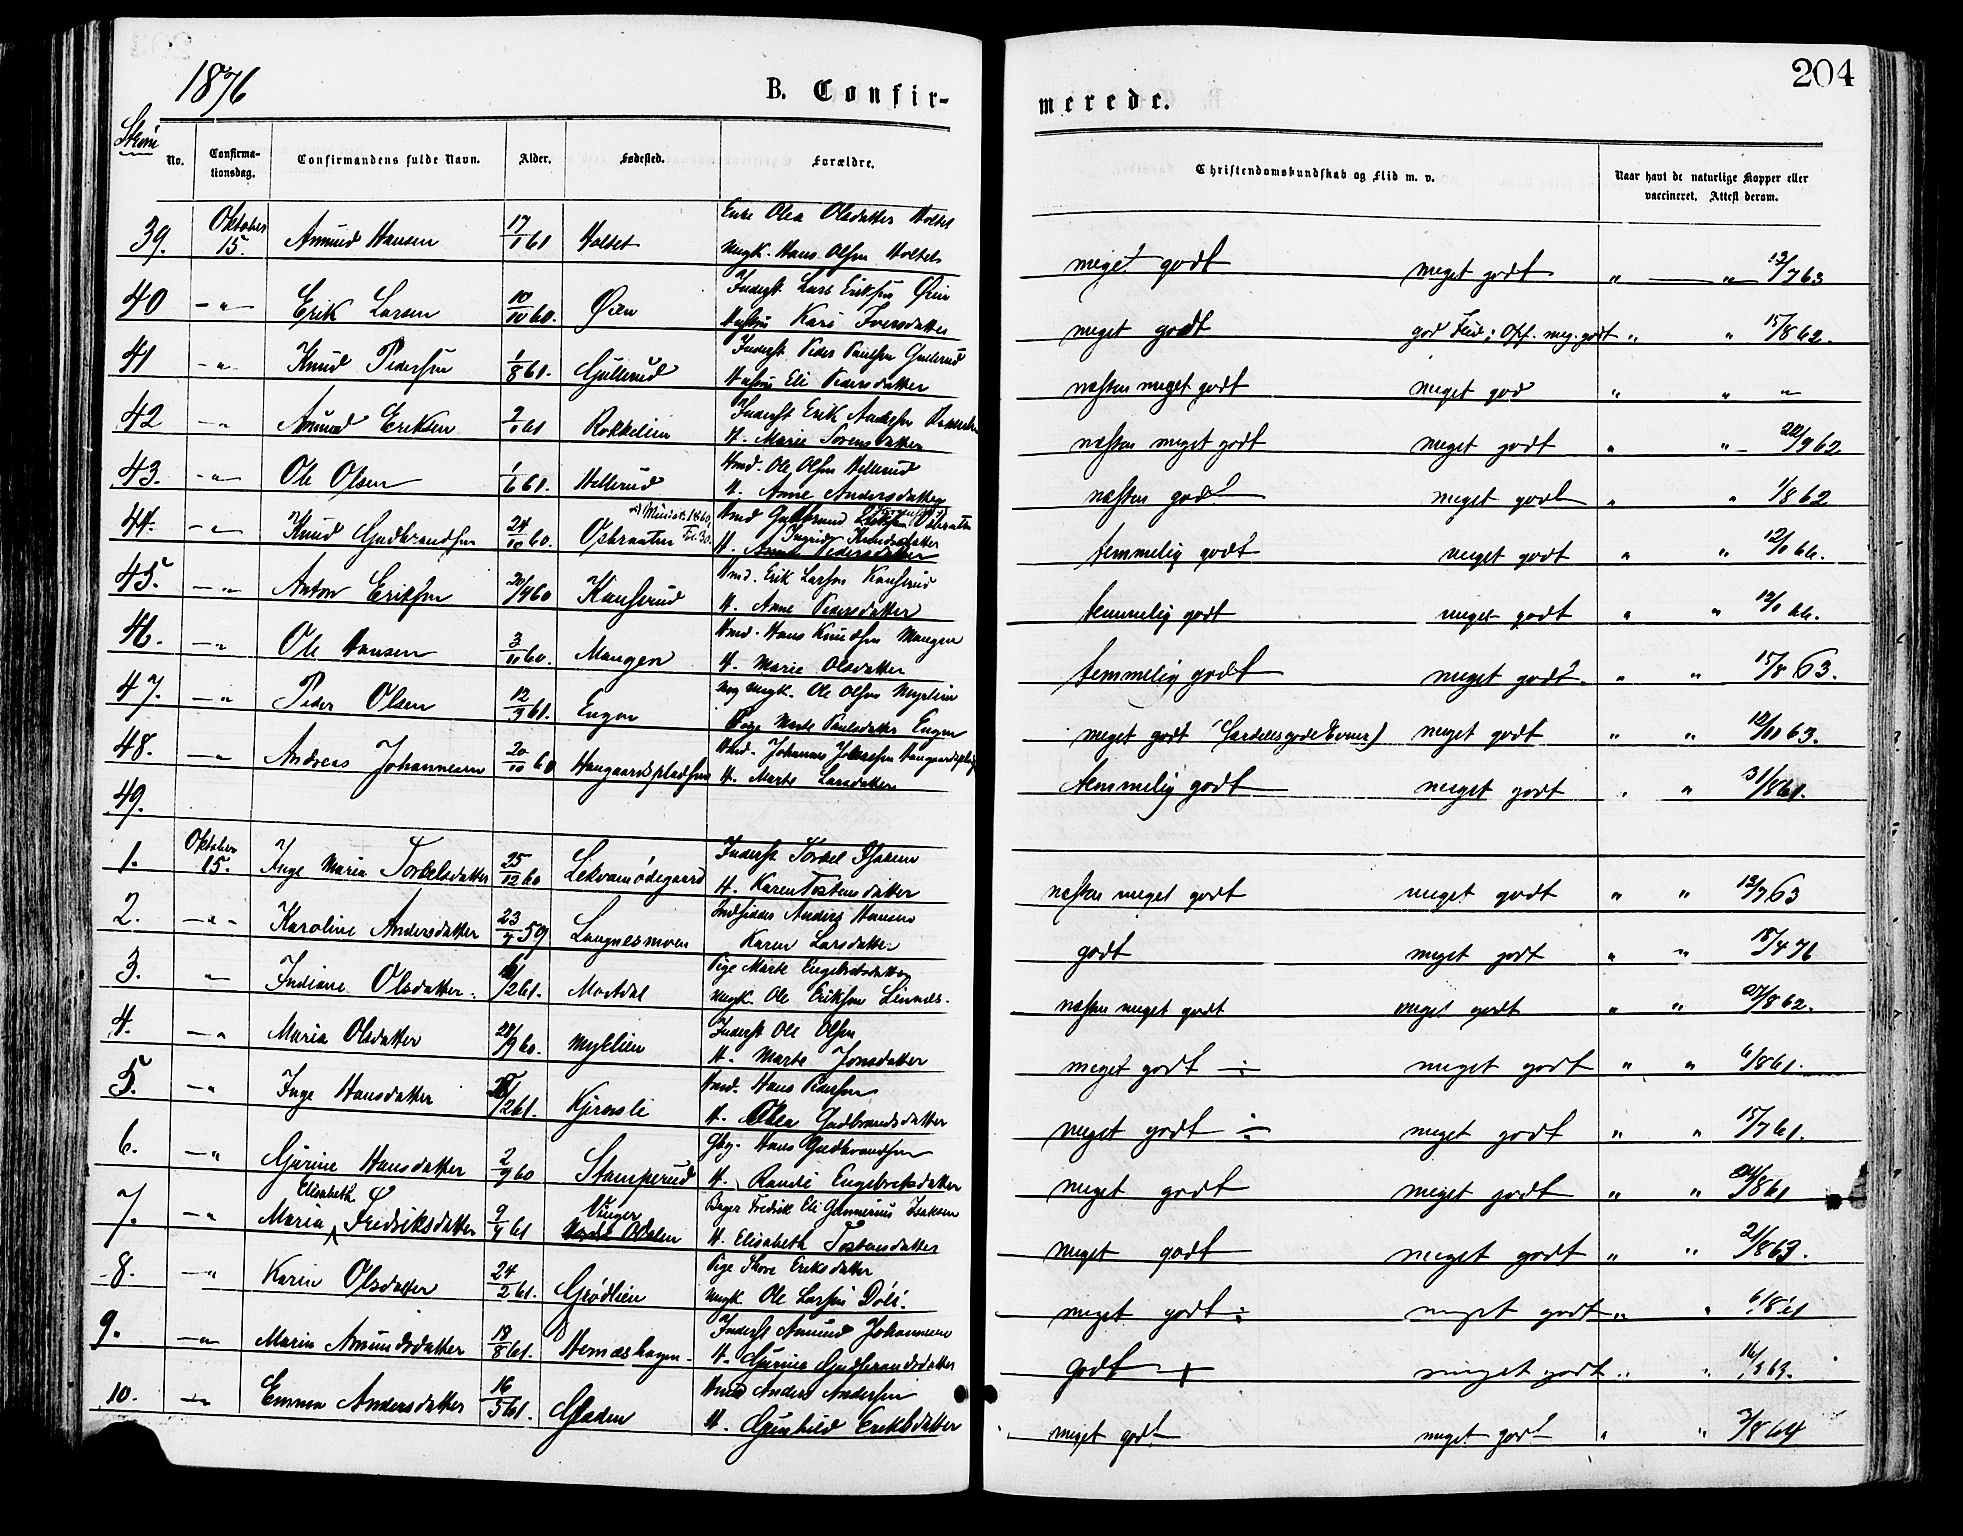 1876
B. Confir-
merede.
204
No.
Confirma-
tionsdag.
Confirmandens fulde Navn.
Alder.
Fødested.
Forældre.
Christendomskundskab og Flid m. v.
Naar havt de naturlige Kopper eller
vaccineret. Attest derom.
Enke Olea Olsdatter Holtet
39. Oktober 15. Amund Hansen 17/1 61 Holtet Ungk. Hans Olsen Holtet meget godt meget godt " — " 12/7 63
Inderst Lars Eriksen Øien
40 — " — Erik Larsen 10/10 60. Øien Hustru Kari Iversdatter meget godt god Flid; Opf. meg. godt " " 15/8 62.
Inderst Peder Paulsen Gullerud
41 — " Knud Pedersen 1/8 61. Gullerud Hustru Eli Pedersdatter næsten meget godt meget god " " "
Inderst Erik Andersen
42 — " — Amund Eriksen 2/1 61 Rokkelien H. Marie Sorensdatter næsten meget godt meget godt " " 22/9 62.
Hmd. Ole Olsen Hellerud
43. — " — Ole Olsen 1/6 61. Hellerud H. Anne Andersdatter næsten godt meget godt " " 1/8 62
Hmd Gudbrand Osbraaten
Ingrid Knudsdatter
44. — " — Knud Gudbrandsen 24/10 60. Osbraaten H. Anne Pedersdatter temmelig godt meget godt " " 12/1 66.
Hmd. Erik Larsen Kanserud
45. — " Anton Eriksen 20/9 60 Kanserud H. Anne Pedersdatter temmelig godt meget godt " " 12/1 66.
Hmd. Hans Knudsen Mangen
46. — " Ole Hansen 3/10 60. Mangen H. Marie Olsdatter temmelig godt meget godt. " " 15/8 63.
Ungk. Ole Olsen Myrlien
47. — " Peder Olsen 12/3 61. Engen Pige Marte Paulsdatter Engen meget godt (Særdeles gode Evner) meget godt " " 12/10 63.
Hmd. Johannes
48. — " Andreas Johannesen 20/10 60 Haugaardspladsen H. Marte Larsdatter temmelig godt meget godt " " 31/8 61.
49.
Inderst Torkel Isaksen
1. Oktober 15. Inge Maria Torkelsdatter 25/12 60 Lekvamødegaard H. Karen Tostensdatter næsten meget godt meget godt " " 12/7 63
Indsidder Anders Hansen
2. — " — Karoline Andersdatter 23/7 59 Langnesmoen Karen Larsdatter godt meget godt " " 18/4 76
Pige Marte Engebretsdatter
3. " — Indiane Olsdatter 2 61. Mortdal Ungk. Ole Eriksen næsten meget godt meget godt " " 27/8 62.
Inderst Ole Olsen
4. — " Maria Olsdatter 28/9 60. Myklien H. Marte Jonsdatter meget godt ÷ meget godt " " 6/8 61.
Hmd. Hans Paulsen
5. — " Inge Hansdatter 2 61. Kjensli H. Olea Gudbrandsdatter meget godt ÷ meget godt " " 15/7 61.
Gbr. Hans Gudbrandsen
6. — " Gurine Hansdatter 2/9 60 Stamperud H. Randi Engebretsdatter meget godt meget godt " " 24/8 61
Elisabeth Vinger Bager Fredrik Eli Gunnerius Isaksen
7. — " Maria Fredriksdatter 9/4 61 Nordre Odalen H. Elisabeth Tostensdatter meget godt meget godt " " 21/8 63.
Pige Thore Eriksdatter
8. — " Karen Olsdatter 24/2 61. Grødlien Ungk. Ole Larsen Döli. meget godt ÷ meget godt " " 6/8 61
Inderst Amund Johannesen
9. — " — Maren Amundsdatter 18/8 61. Hernæshagen H. Gurine Gudbrandsdatter godt + meget godt " " 16/ 63.
Hmd Anders Andersen
10. — " — Emma Andersdatter 16/5 61. Gladen H. Gunhild Eriksdatter meget godt meget godt " " 3/8 64